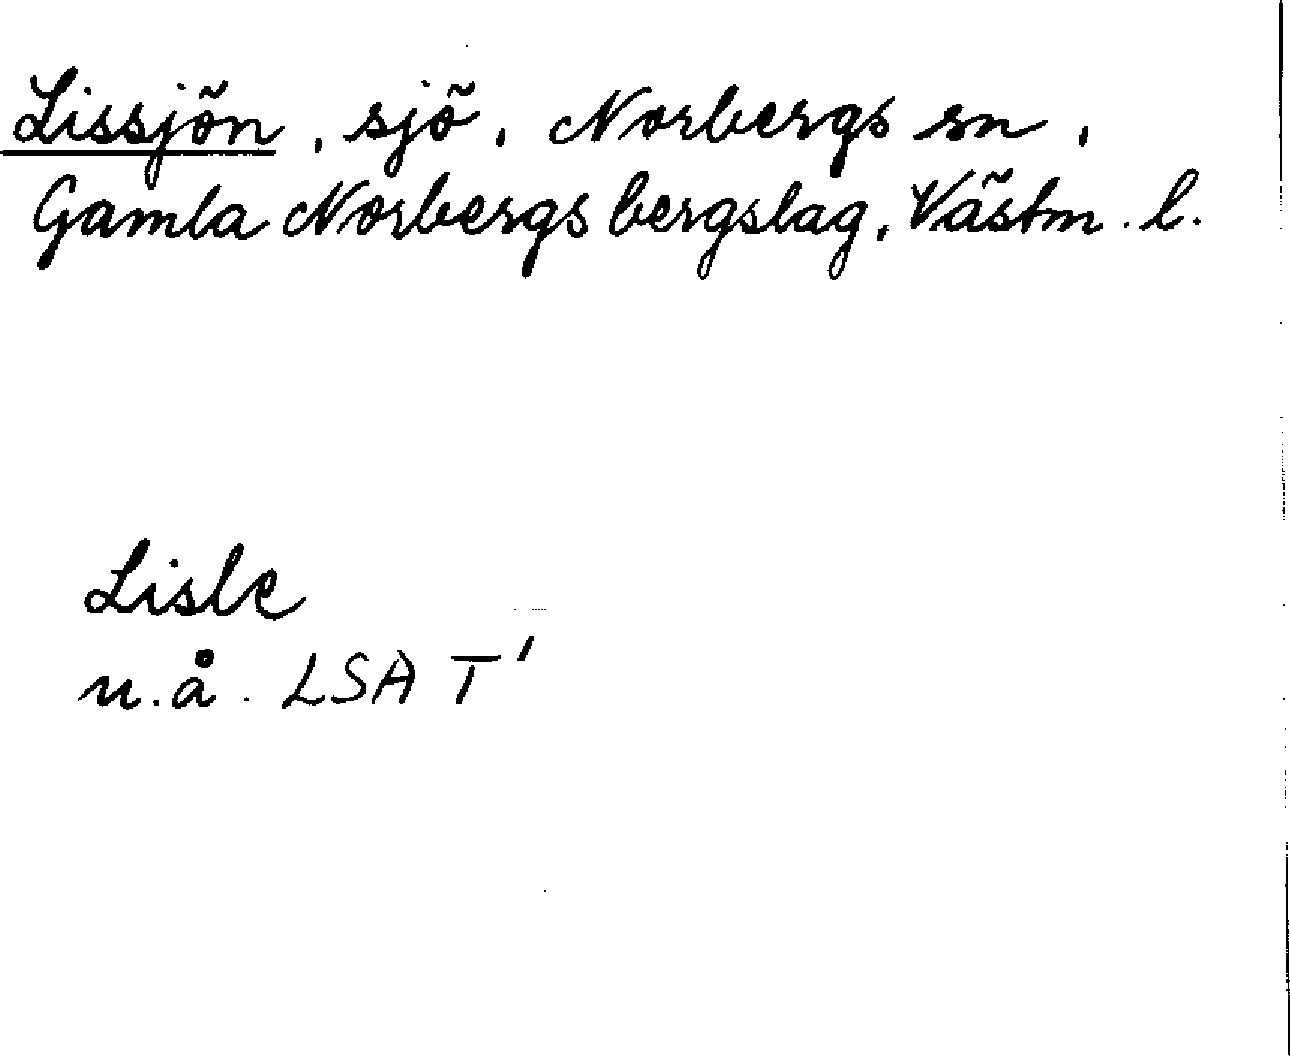 Lissjön, sjö, Norbergs sn,
Gamla Norbergs bergslag, Västm. l.
Lisle
u.å. LSA T'